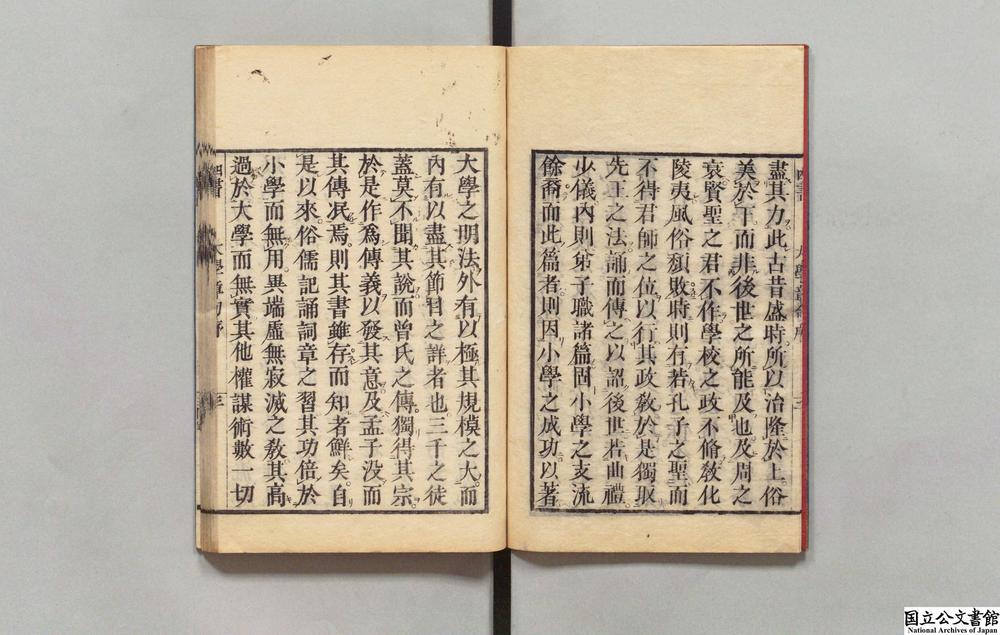 盡其力此古昔盛時所以治隆於上俗
美於下而非後世之所能及也及周之
衰賢聖之君不作學校之政不脩敎化
陵夷風俗頽敗時則有若孔子之聖而
不得君師之位以行其政敎於是獨取
先王之法誦而傳之以詔後世若曲禮
少儀內則弟子職諸篇固小學之支流
餘裔而此篇者則因小學之成功以著
大學之明法外有以極其規模之大而
內有以盡其節目之詳者也三千之徒
蓋莫不聞其說而曾氏之傳獨得其宗
於是作爲傳義以發其意及孟子没而
其傳泯焉則其書雖存而知者鮮矣自
是以來俗儒記誦詞章之習其功倍於
小學而無用異端虛無寂滅之敎其高
過於大學而無實其他權謀術數一切
四書 大學章句序 三
国立公文書館
National Archives of Japan